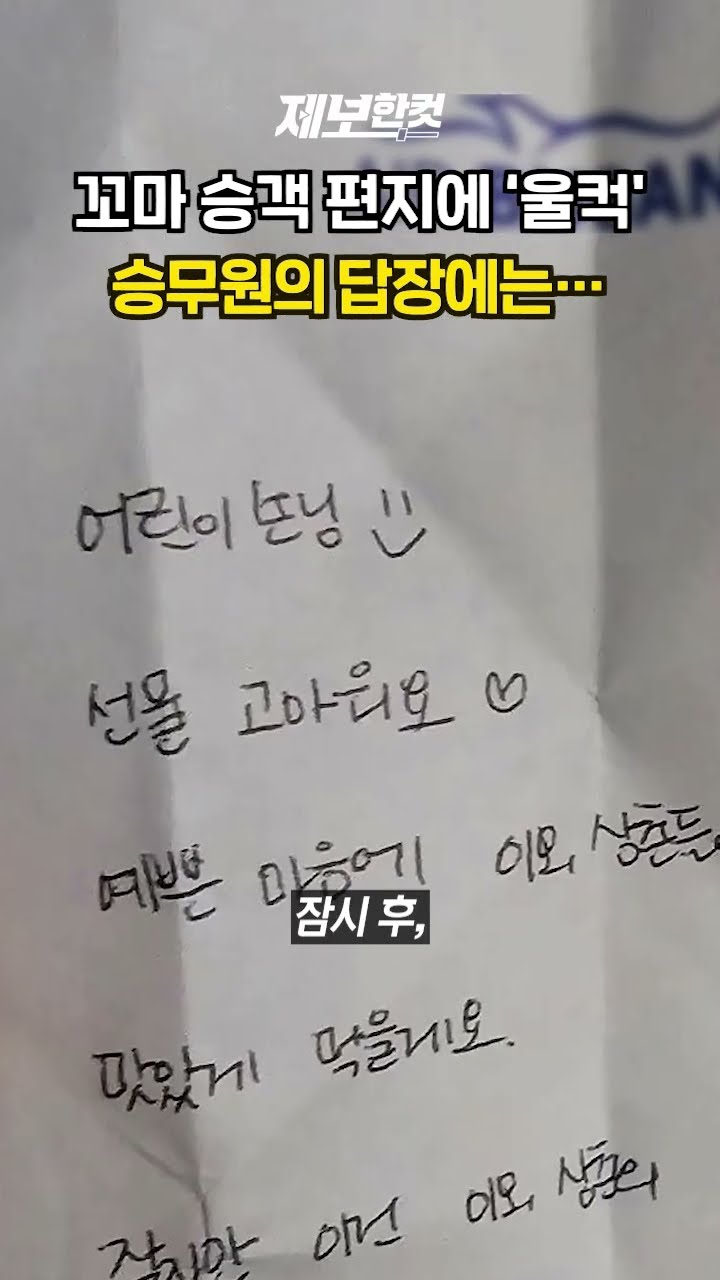 제보한컷
꼬마 승객 편지에 '울컥'
승무원의 답장에는…
어린이 손님
선물 고마워요 ♡
예쁜 마음에 이모, 삼촌들
잠시 후,
맛있게 먹을게요.
이건 이모, 삼촌의